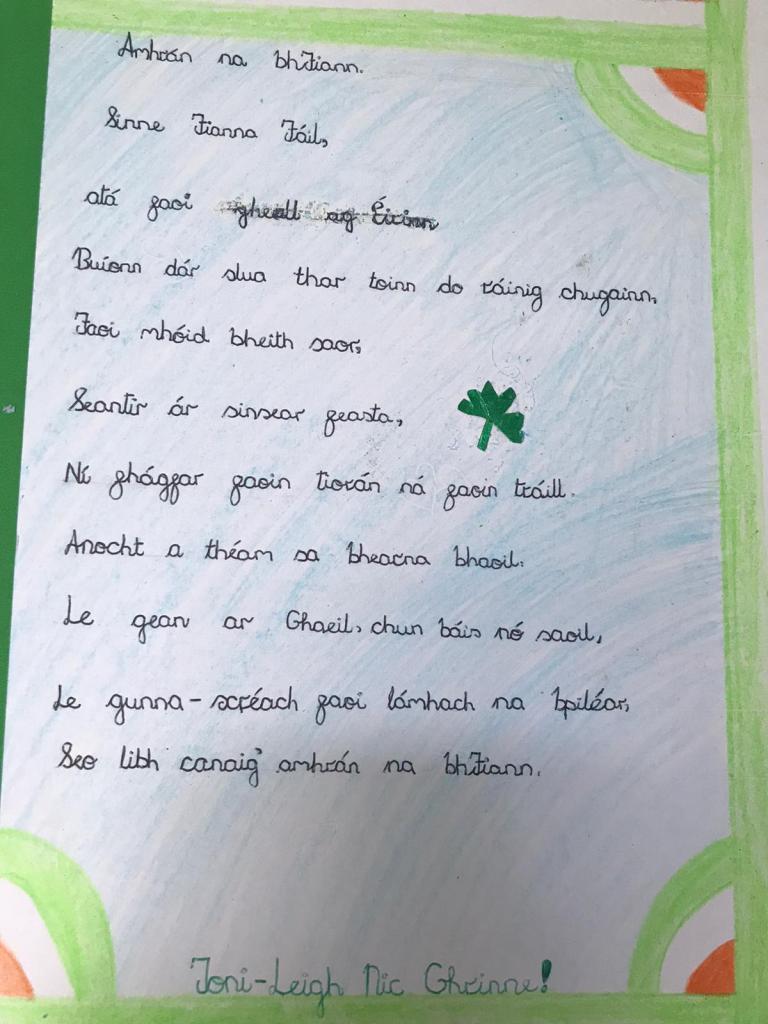 Amhrán na bhFiann.
Sinne Fianna Fáil,
atá faoi gheall ag Éirinn
Buíonn dár slua thar toinn do ráinig chugainn,
Faoi mhóid bheith saor,
Seantír ár sinsear feasta,
Ní fhágfar faoin tiorán ná faoin tráill.
Anocht a théam sa bhearna bhaoil.
Le gean ar Ghaeil, chun báis nó saoil,
Le gunna-scréach faoi lámhach na bpiléar,
Seo libh canaig' amhrán na bhFiann.
Toni-Leigh Nic Ghrinne!